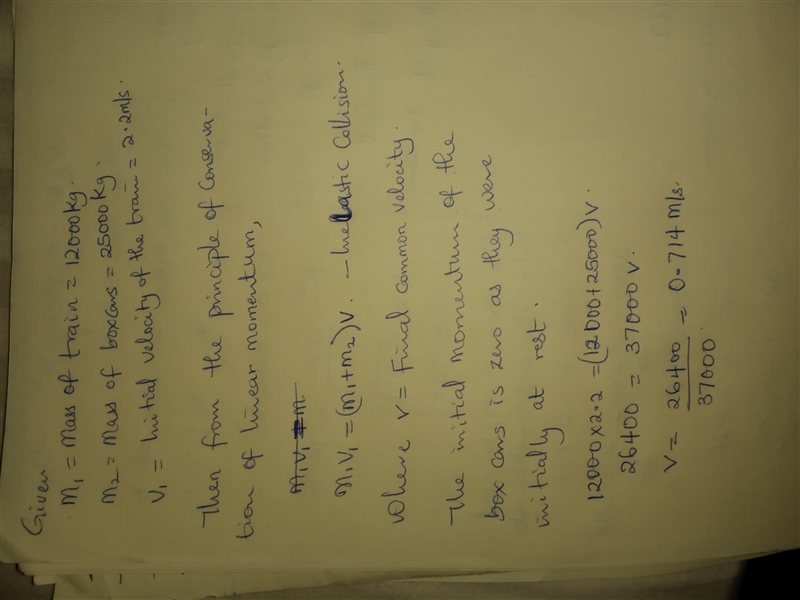 Given
M₁ = Mass of train = 12000kg.
M₂ = Mass of boxcars = 25000kg.
V₁ = Initial velocity of the train = 2.2m/s.
Then from the principle of Conserva-
tion of linear momentum,
M₁V₁ = (M₁+M₂)V. - Inelastic Collision.
Where V = Final Common velocity.
The initial momentum of the
box cars is zero as they were
initially at rest.
12000 x 2.2 = (12000+25000)V.
26400 = 37000V.
V = 26400/37000 = 0.714 m/s.